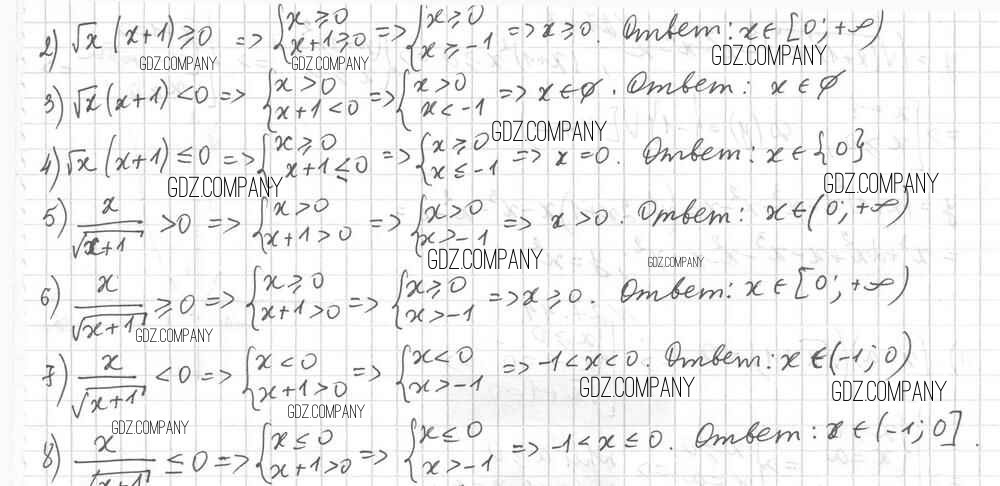 2) √x (x+1) ≥ 0 => {x ≥ 0 x+1 ≥ 0 => {x ≥ 0 x ≥ -1 => x ≥ 0. Ответ: x ∈ [0; +∞)
GDZ.COMPANY GDZ.COMPANY GDZ.COMPANY
3) √x (x+1) < 0 => {x > 0 x+1 < 0 => {x > 0 x < -1 => x ∈ ∅. Ответ: x ∈ ∅
GDZ.COMPANY
4) √x (x+1) ≤ 0 => {x ≥ 0 x+1 ≤ 0 => {x ≥ 0 x ≤ -1 => x = 0. Ответ: x ∈ {0}
GDZ.COMPANY GDZ.COMPANY
5) x/√(x+1) > 0 => {x > 0 x+1 > 0 => {x > 0 x > -1 => x > 0. Ответ: x ∈ (0; +∞)
GDZ.COMPANY GDZ.COMPANY
6) x/√(x+1) ≥ 0 => {x ≥ 0 x+1 > 0 => {x ≥ 0 x > -1 => x ≥ 0. Ответ: x ∈ [0; +∞)
GDZ.COMPANY
7) x/√(x+1) < 0 => {x < 0 x+1 > 0 => {x < 0 x > -1 => -1 < x < 0. Ответ: x ∈ (-1; 0)
GDZ.COMPANY GDZ.COMPANY GDZ.COMPANY
GDZ.COMPANY
8) x/√(x+1) ≤ 0 => {x ≤ 0 x+1 > 0 => {x ≤ 0 x > -1 => -1 < x ≤ 0. Ответ: x ∈ (-1; 0].